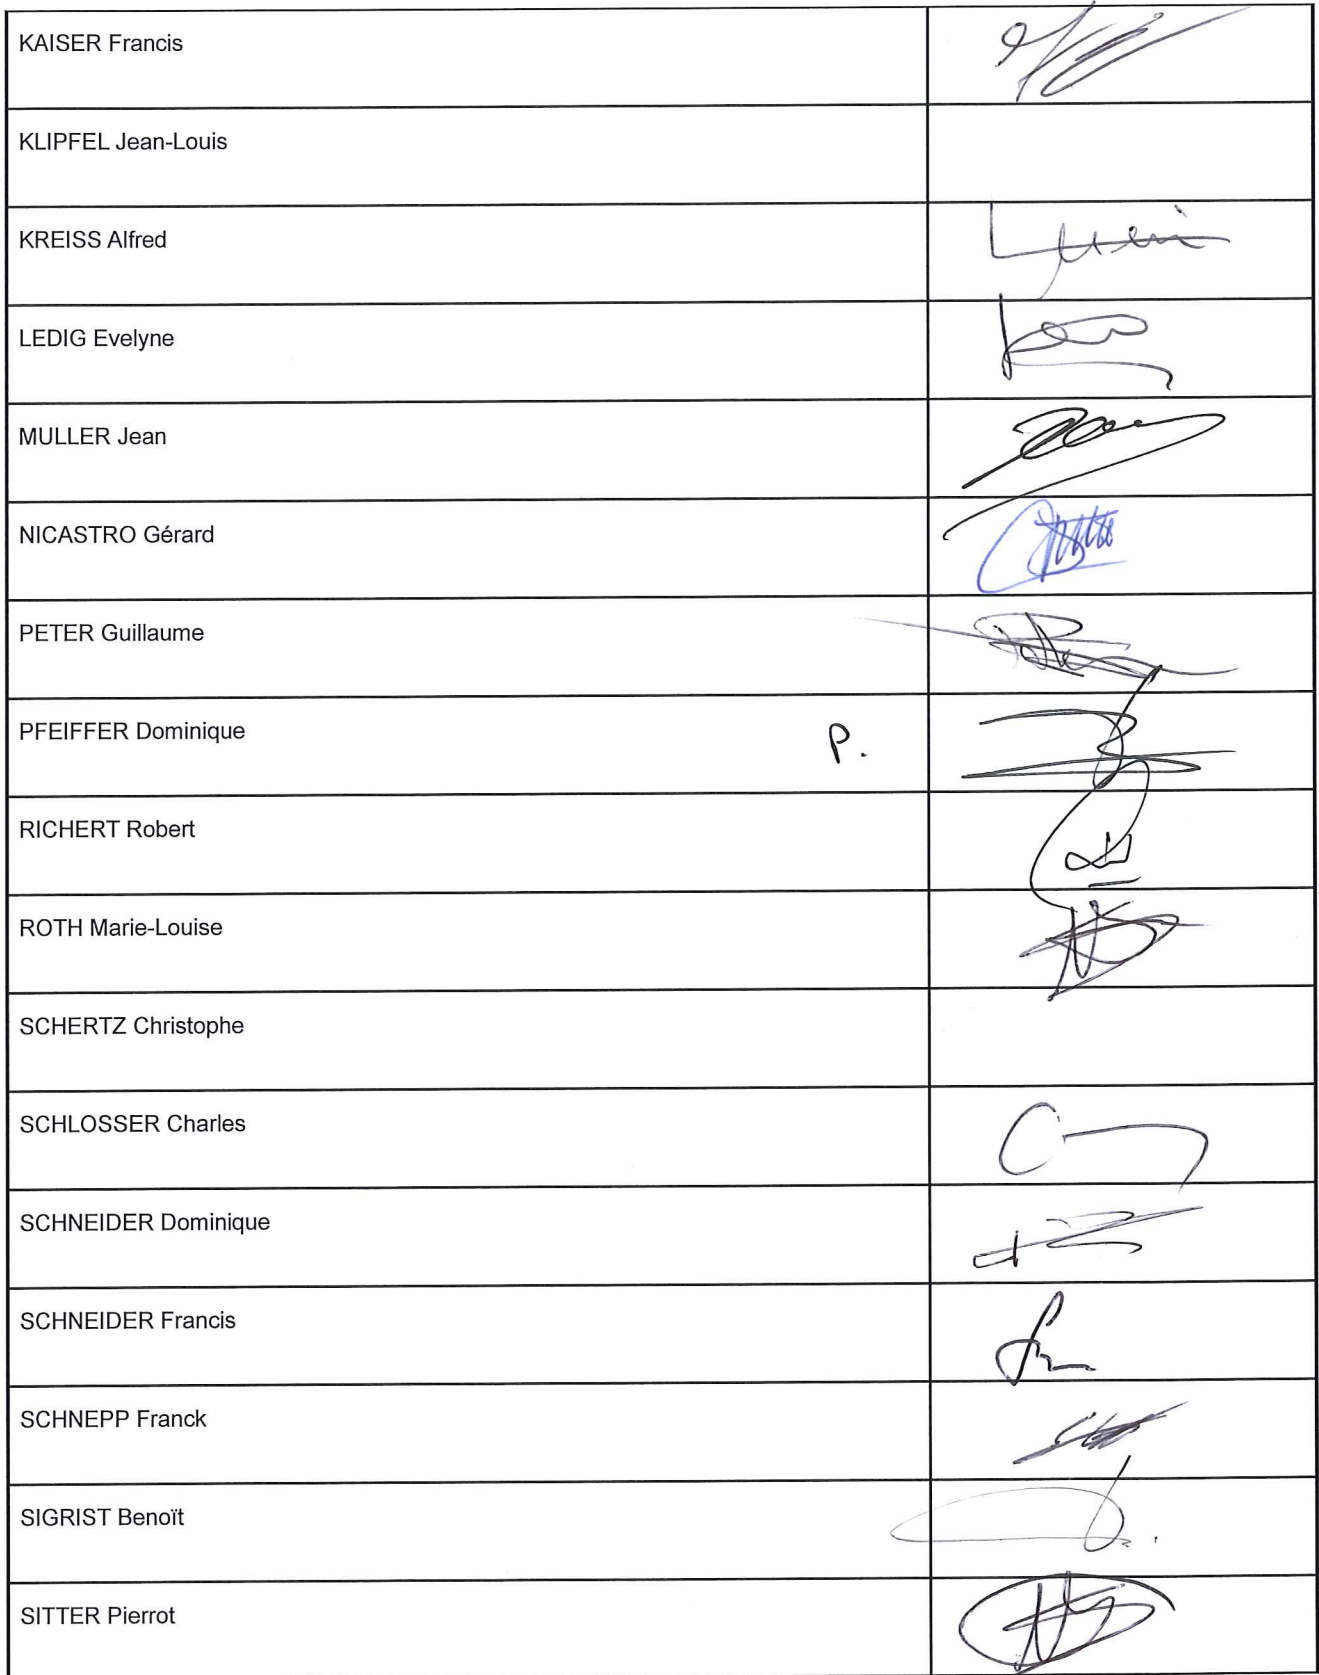 KAISER Francis
KLIPFEL Jean-Louis
KREISS Alfred
LEDIG Evelyne
MULLER Jean
NICASTRO Gérard
PETER Guillaume
PFEIFFER Dominique P.
RICHERT Robert
ROTH Marie-Louise
SCHERTZ Christophe
SCHLOSSER Charles
SCHNEIDER Dominique
SCHNEIDER Francis
SCHNEPP Franck
SIGRIST Benoït
SITTER Pierrot